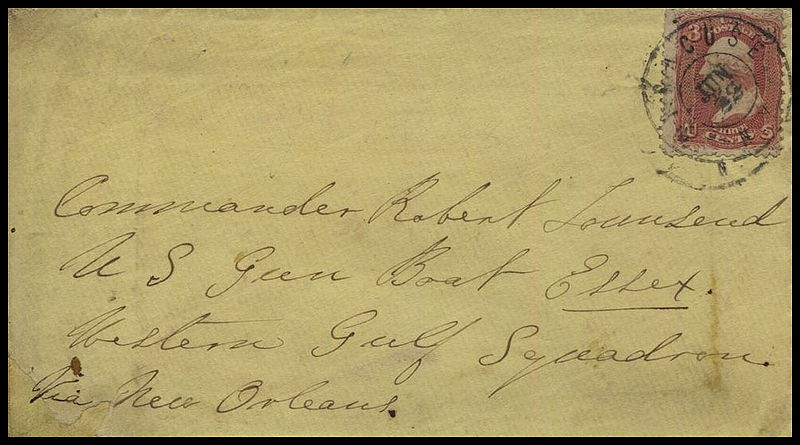 SYRACUSE
JUN
N Y
3
U S
THREE
CENTS
Commander Robert Townsend
U S Gun Boat Essex.
Western Gulf Squadron.
Via New Orleans.